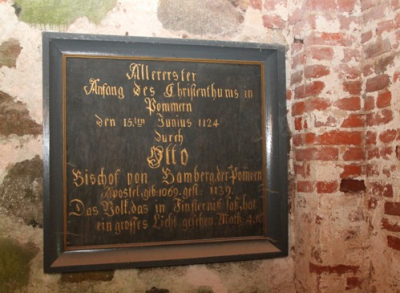 Allererster
Anfang des Christenthums in
Pommern
den 15.ten Junius 1124
durch
Otto
Bischof von Bamberg, der Pomern
Apostel, geb. 1069. gest. 1139.
Das Volk, das in Finsterniß saß, hat
ein grosses Licht gesehen. Math. 4.